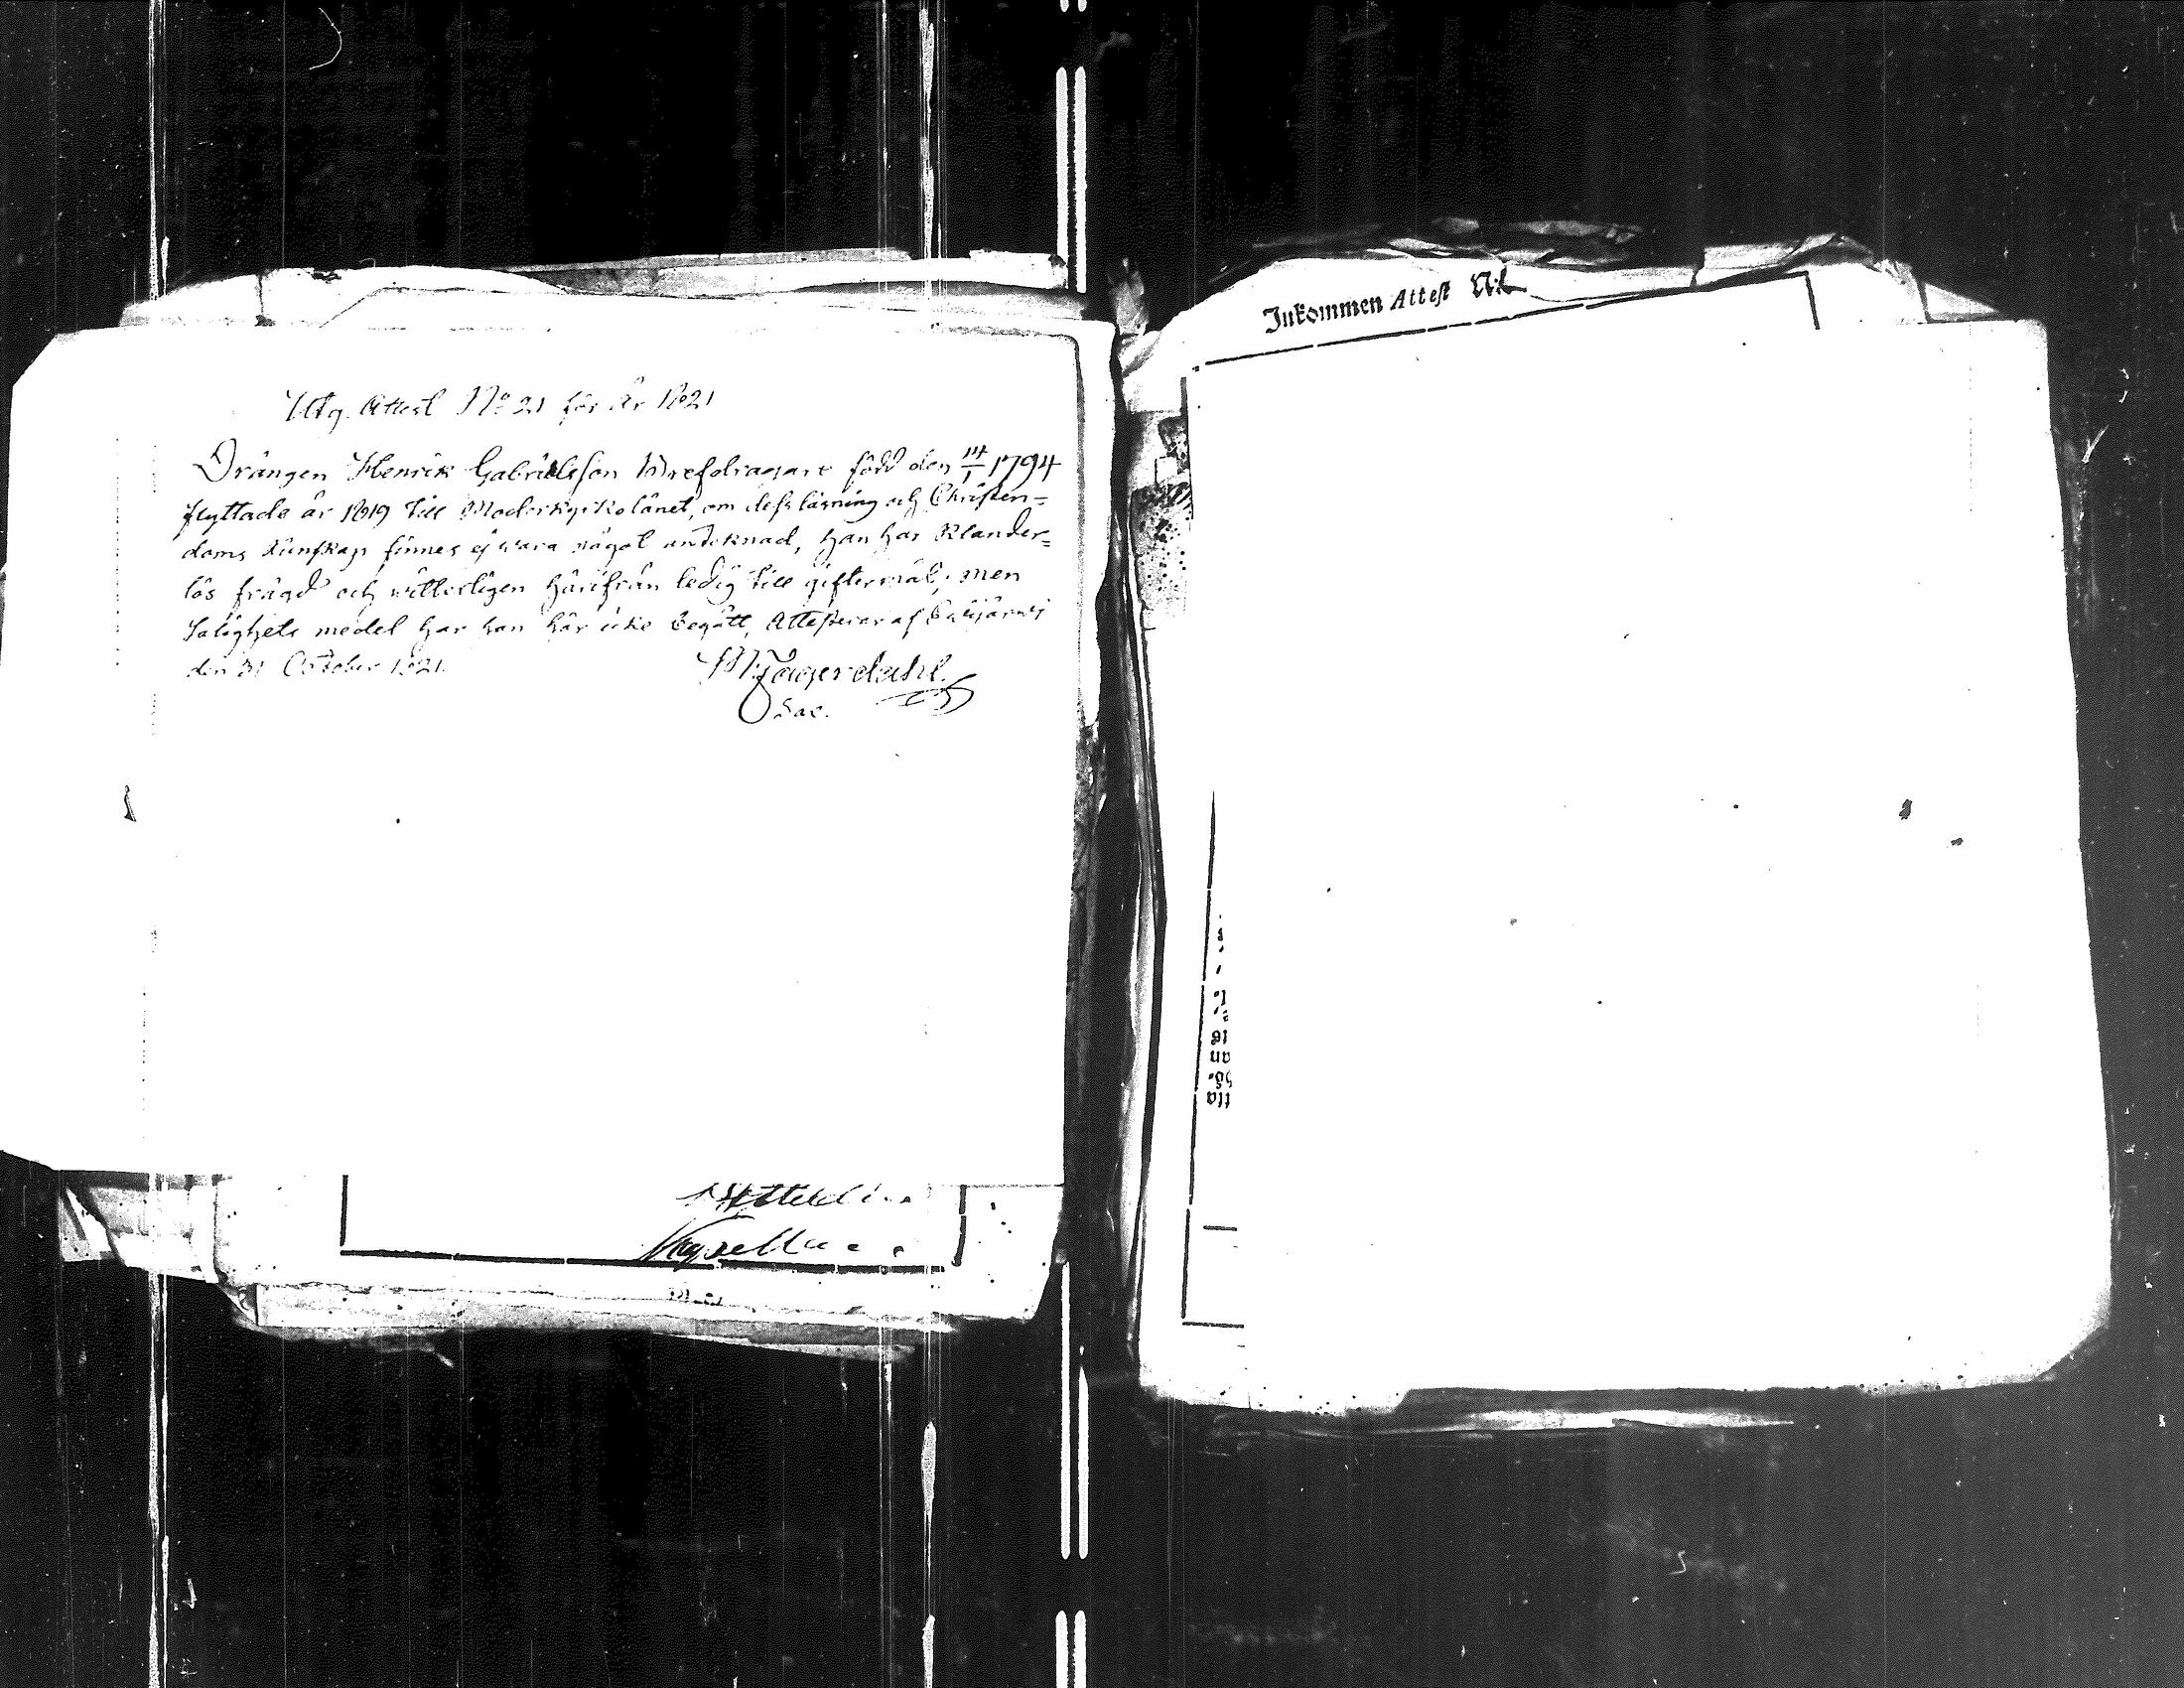 Utg. Attest No 21 för År 1821
Drängen Henrik Gabrielsson född den 14/1 1794
flyttade år 1819 till Moderkyrkolänet, om dess läsning och Christen=
doms kunskap finnes ej wara något antecknad, han har klander=
lös frägd och witterligen härifrån ledig till giftermål; men
Salighets medel har han här icke begått, Attesterar af
den 31 October 1821.
Sac.
Inkommen Attest N: